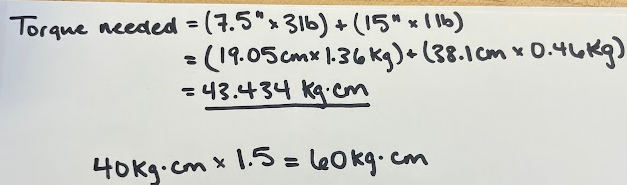 Torque needed = (7.5" x 3lb) + (15" x 1lb)
= (19.05cm x 1.36 Kg) + (38.1cm x 0.46Kg)
= 43.434 Kg·cm
40Kg·cm x 1.5 = 60kg·cm